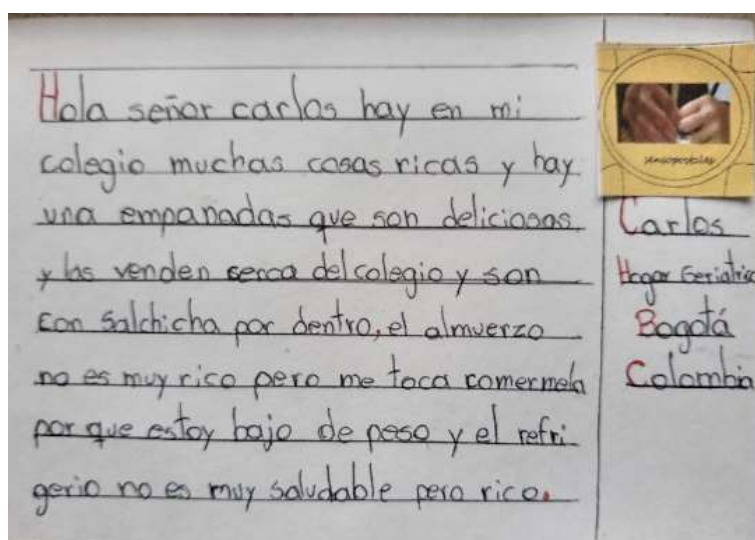 Hola señor carlos hay en mi
colegio muchas cosas ricas y hay
una empanadas que son deliciosas
y las venden serca del colegio y son
con salchicha por dentro, el almuerzo
no es muy rico pero me toca comermela
por que estoy bajo de peso y el refri
gerio no es muy saludable pero rico.
sensopostales
Carlos
Hogar Geriatrico
Bogotá
Colombia